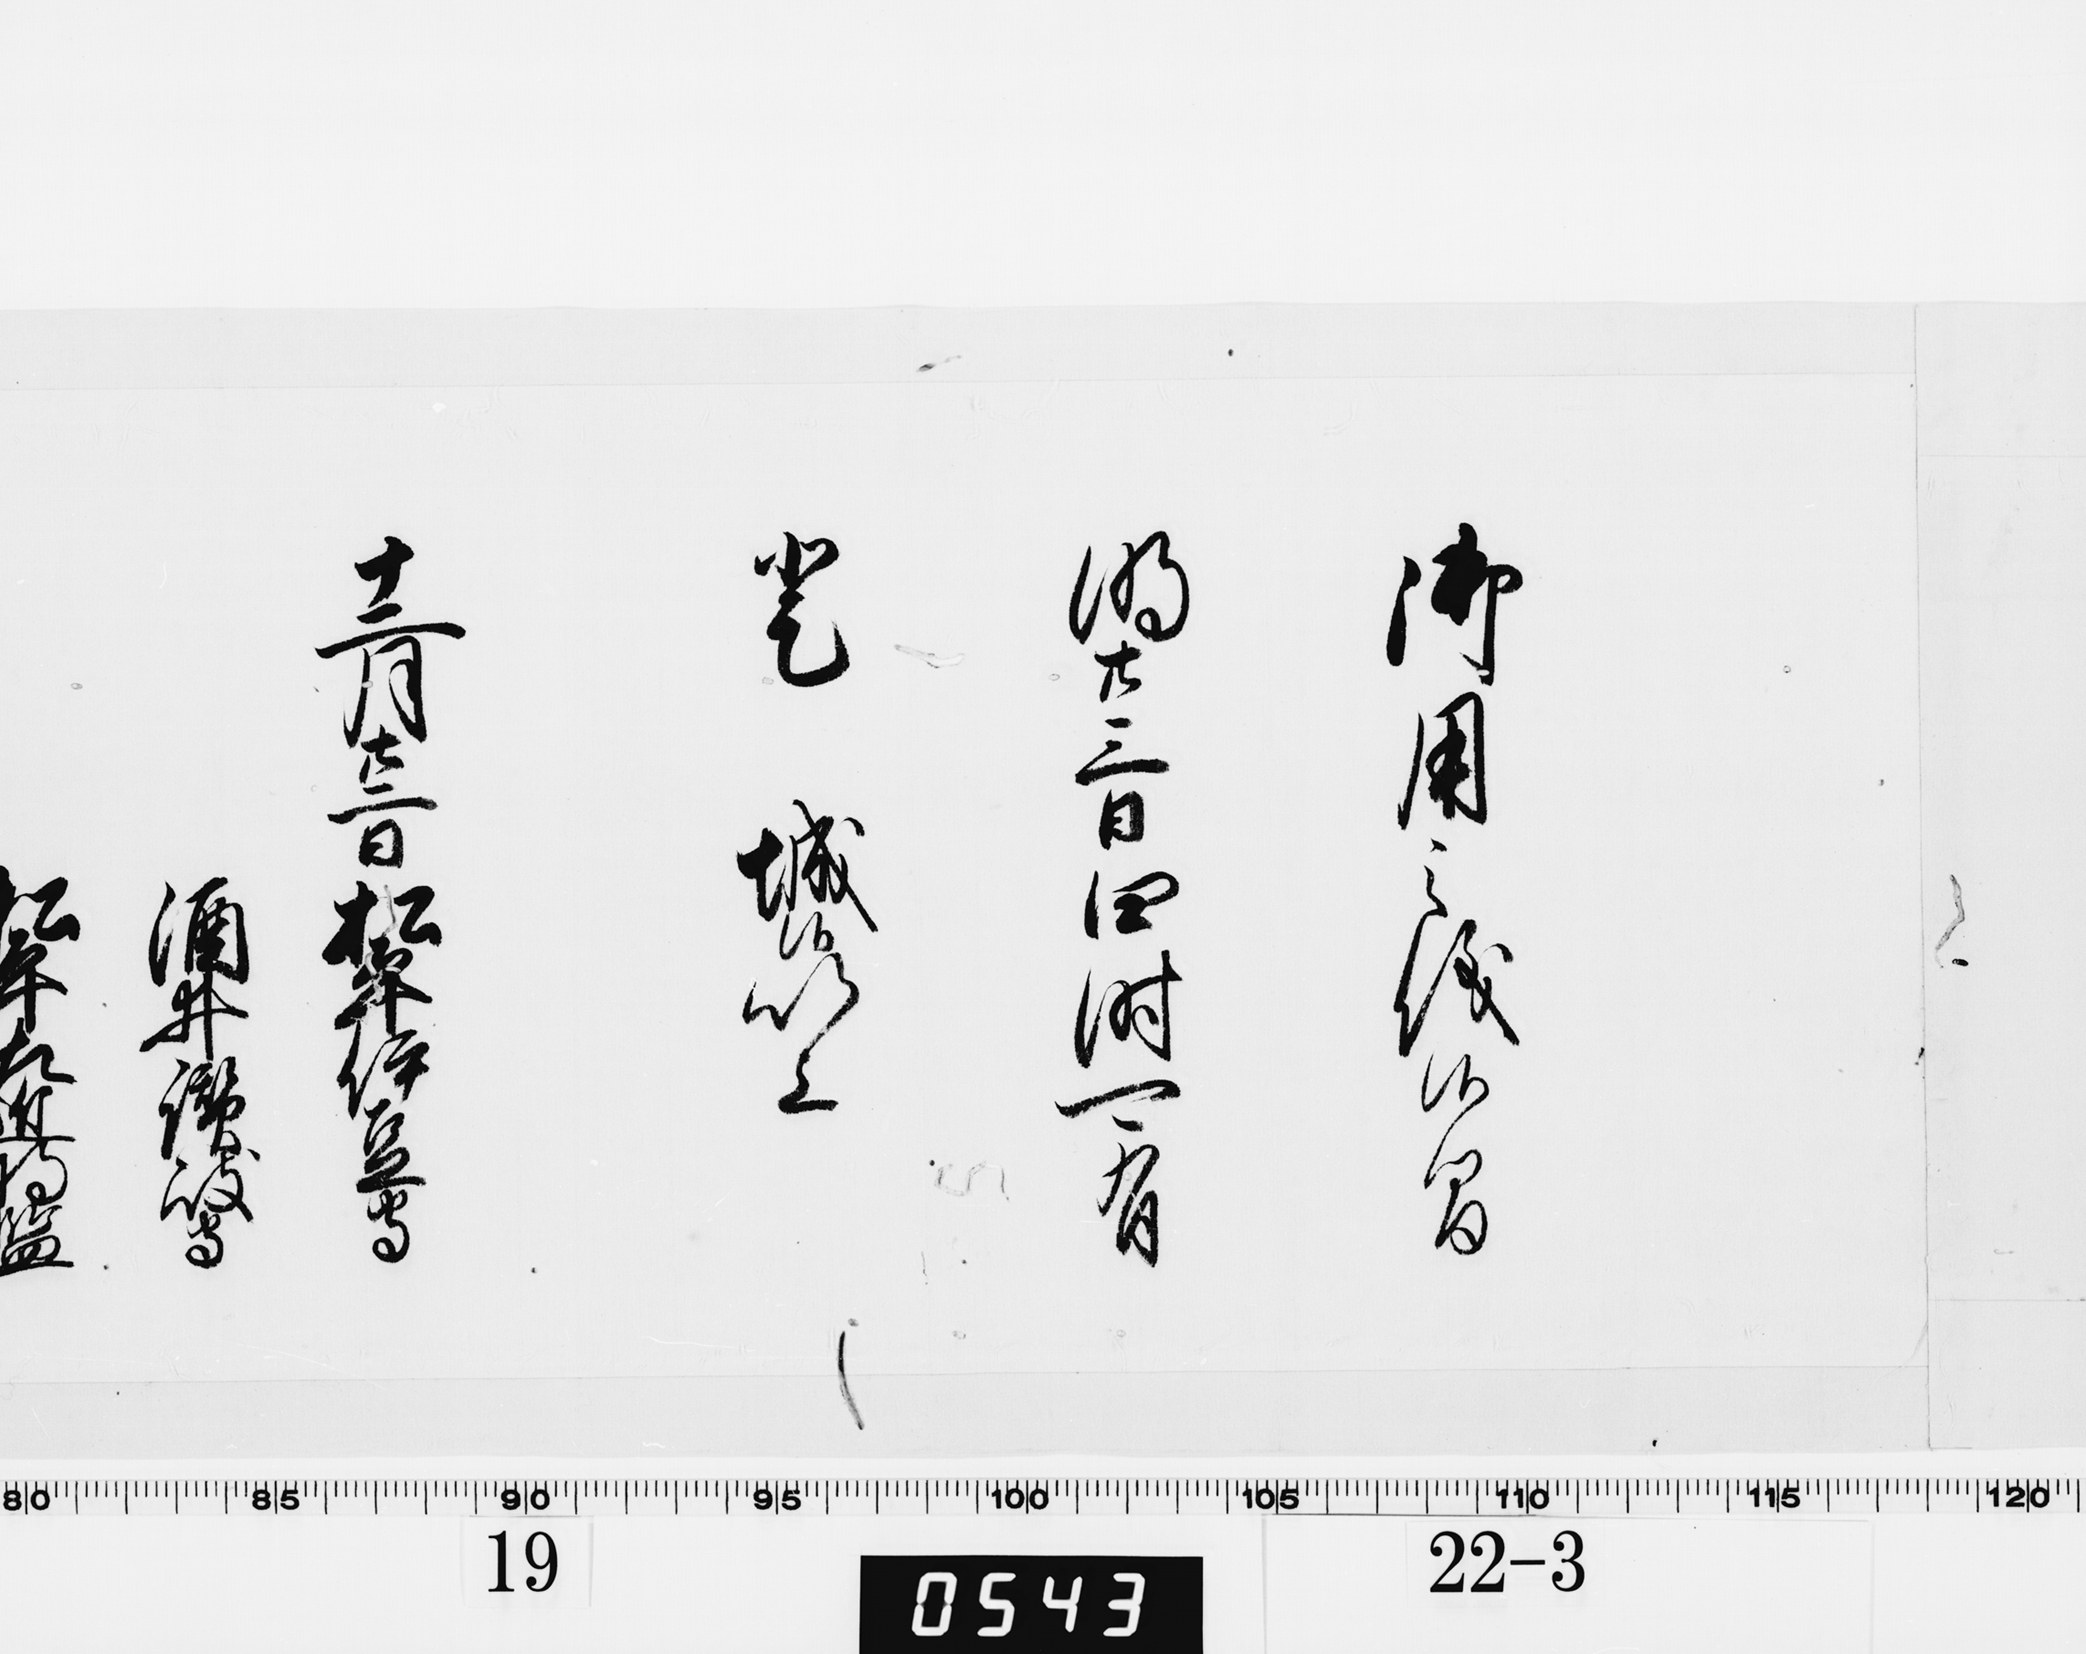 御用之儀候間
明廿三日四時可有
登 城候以上
十二月廿二日 松平伊豆守
酒井讃岐守
松平右近将監
80 85 90 95 100 105 110 115 120
19
0543
22-3